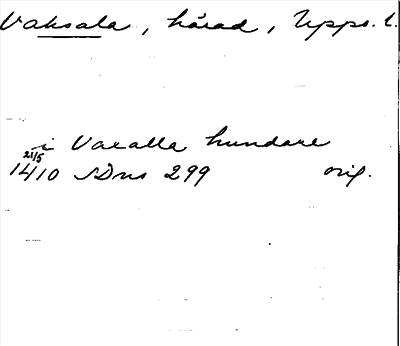 Vaksala, härad, Upps. l.
i Vaxalla hundare
21/5
1410 SDns 299 orig.